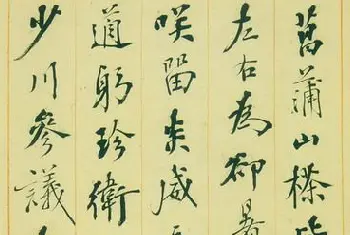 菖蒲山
左右為却暑
咲留
道躬珍衛
少川參議